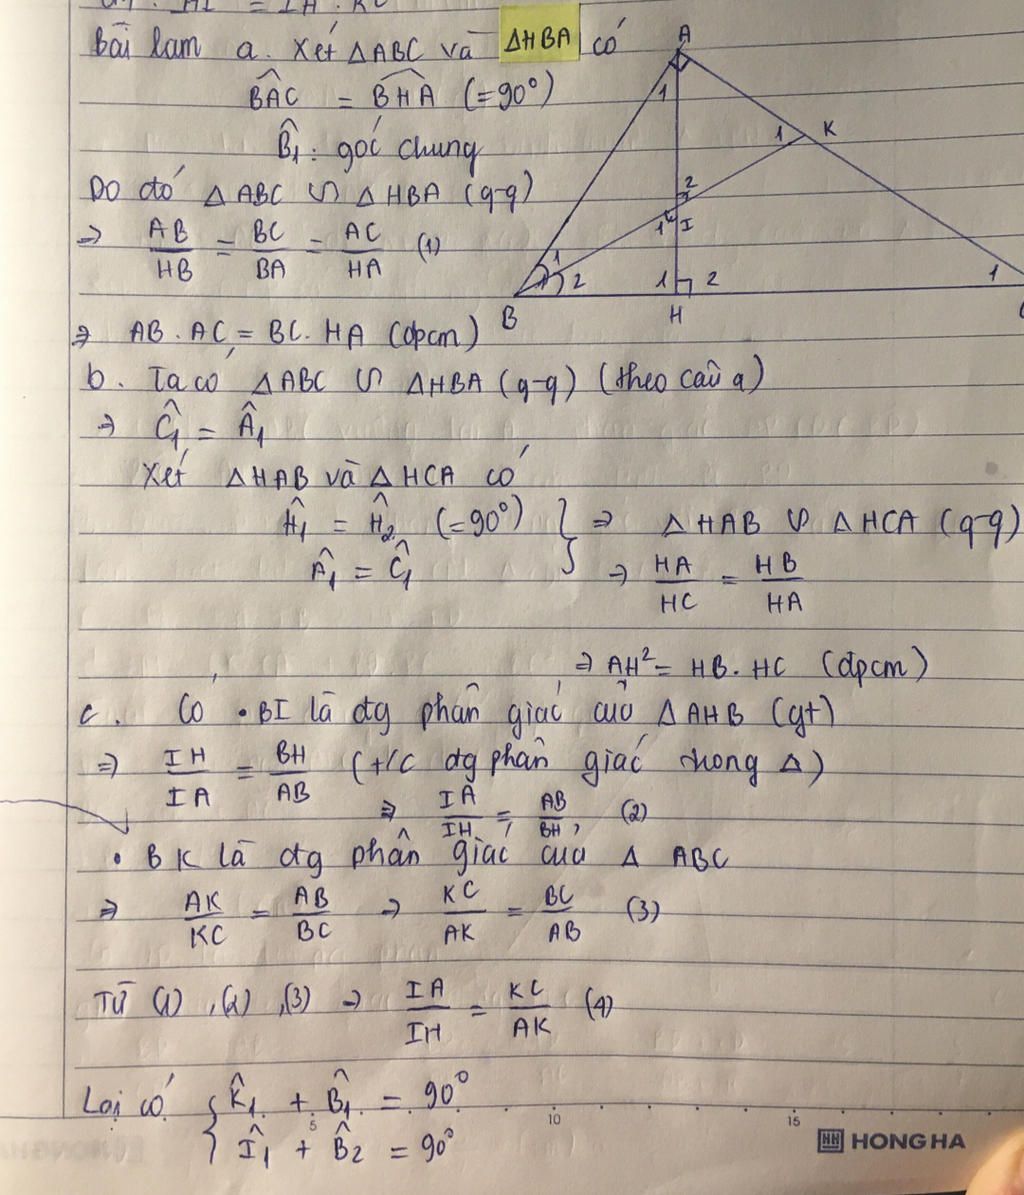 bài làm a. Xét ΔABC và ΔHBA có
B̂AC = B̂HA (=90°)
B̂₁: góc chung
Do đó ΔABC ∽ ΔHBA (g-g)
⇒ AB/HB = BC/BA = AC/HA (1)
⇒ AB.AC = BC.HA (đpcm)
b. Ta có ΔABC ∽ ΔHBA (g-g) (theo câu a)
⇒ Ĉ₁ = Â₁
Xét ΔHAB và ΔHCA có
Ĥ₁ = Ĥ₂ (=90°) } ⇒ ΔHAB ∽ ΔHCA (g-g)
Â₁ = Ĉ₁ ⇒ HA/HC = HB/HA
⇒ AH² = HB.HC (đpcm)
c. Có • BI là đg phân giác của ΔAHB (gt)
⇒ IH/IA = BH/AB (t/c đg phân giác trong Δ)
⇒ IA/IH = AB/BH, (2)
• BK là đg phân giác của Δ ABC
⇒ AK/KC = AB/BC ⇒ KC/AK = BC/AB (3)
Từ (1), (2), (3) ⇒ IA/IH = KC/AK (4)
Lại có { K̂₁ + B̂₁ = 90°
Î₁ + B̂₂ = 90°
A
1
1 K
2
1 I
1
2
1 2
1
B
H
5 10 15
HH HONG HA